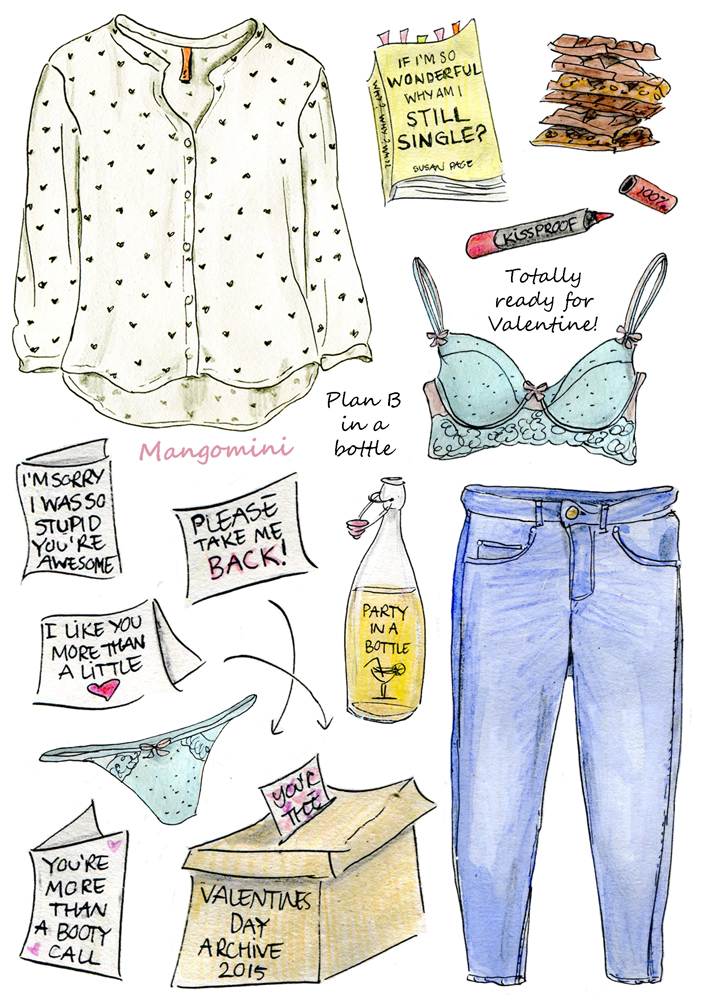 IF I'M SO
WONDERFUL
WHY AM I
STILL
SINGLE?
SUSAN PAGE
100%
KISSPROOF
Totally
ready for
Valentine!
Plan B
in a
bottle
Mangomini
I'M SORRY
I WAS SO
STUPID
YOU'RE
AWESOME
PLEASE
TAKE ME
BACK!
PARTY
IN A
BOTTLE
I LIKE YOU
MORE THAN
A LITTLE
YOU'R
THE
YOU'RE
MORE
THAN
A BOOTY
CALL
VALENTINES
DAY
ARCHIVE
2015